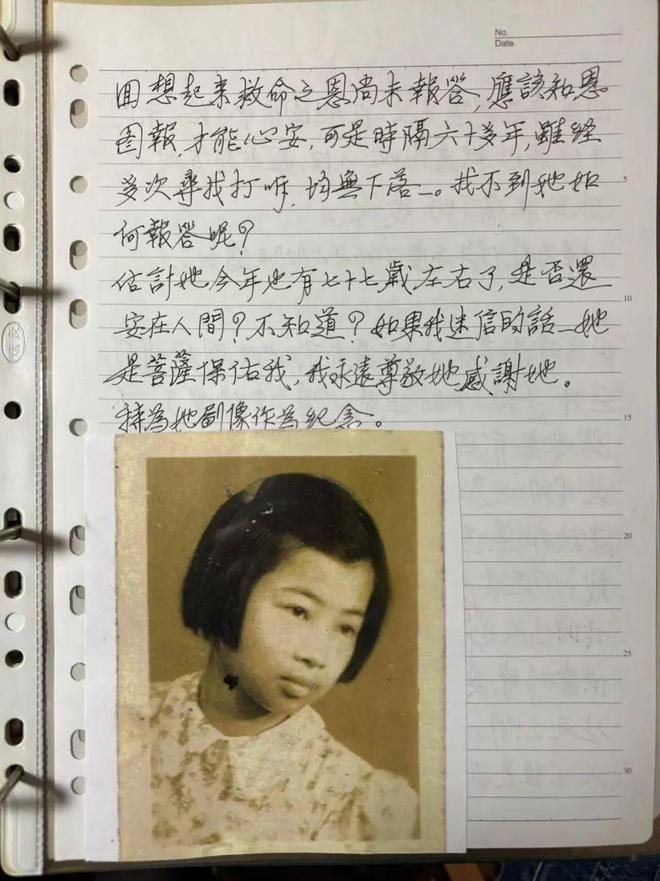 No.
Date.
回想起来救命之恩尚未報答,應該知恩
图報,才能心安,可是時隔六十多年,雖経
多次尋找打听,均無下落。找不到她如
何報答呢?
估計她今年也有七十七歲左右了,是否還
安在人間?不知道?如果我迷信的話她
是菩薩保佑我,我永遠尊敬她感謝她。
特為她副像作為紀念。
5
10
15
20
25
30